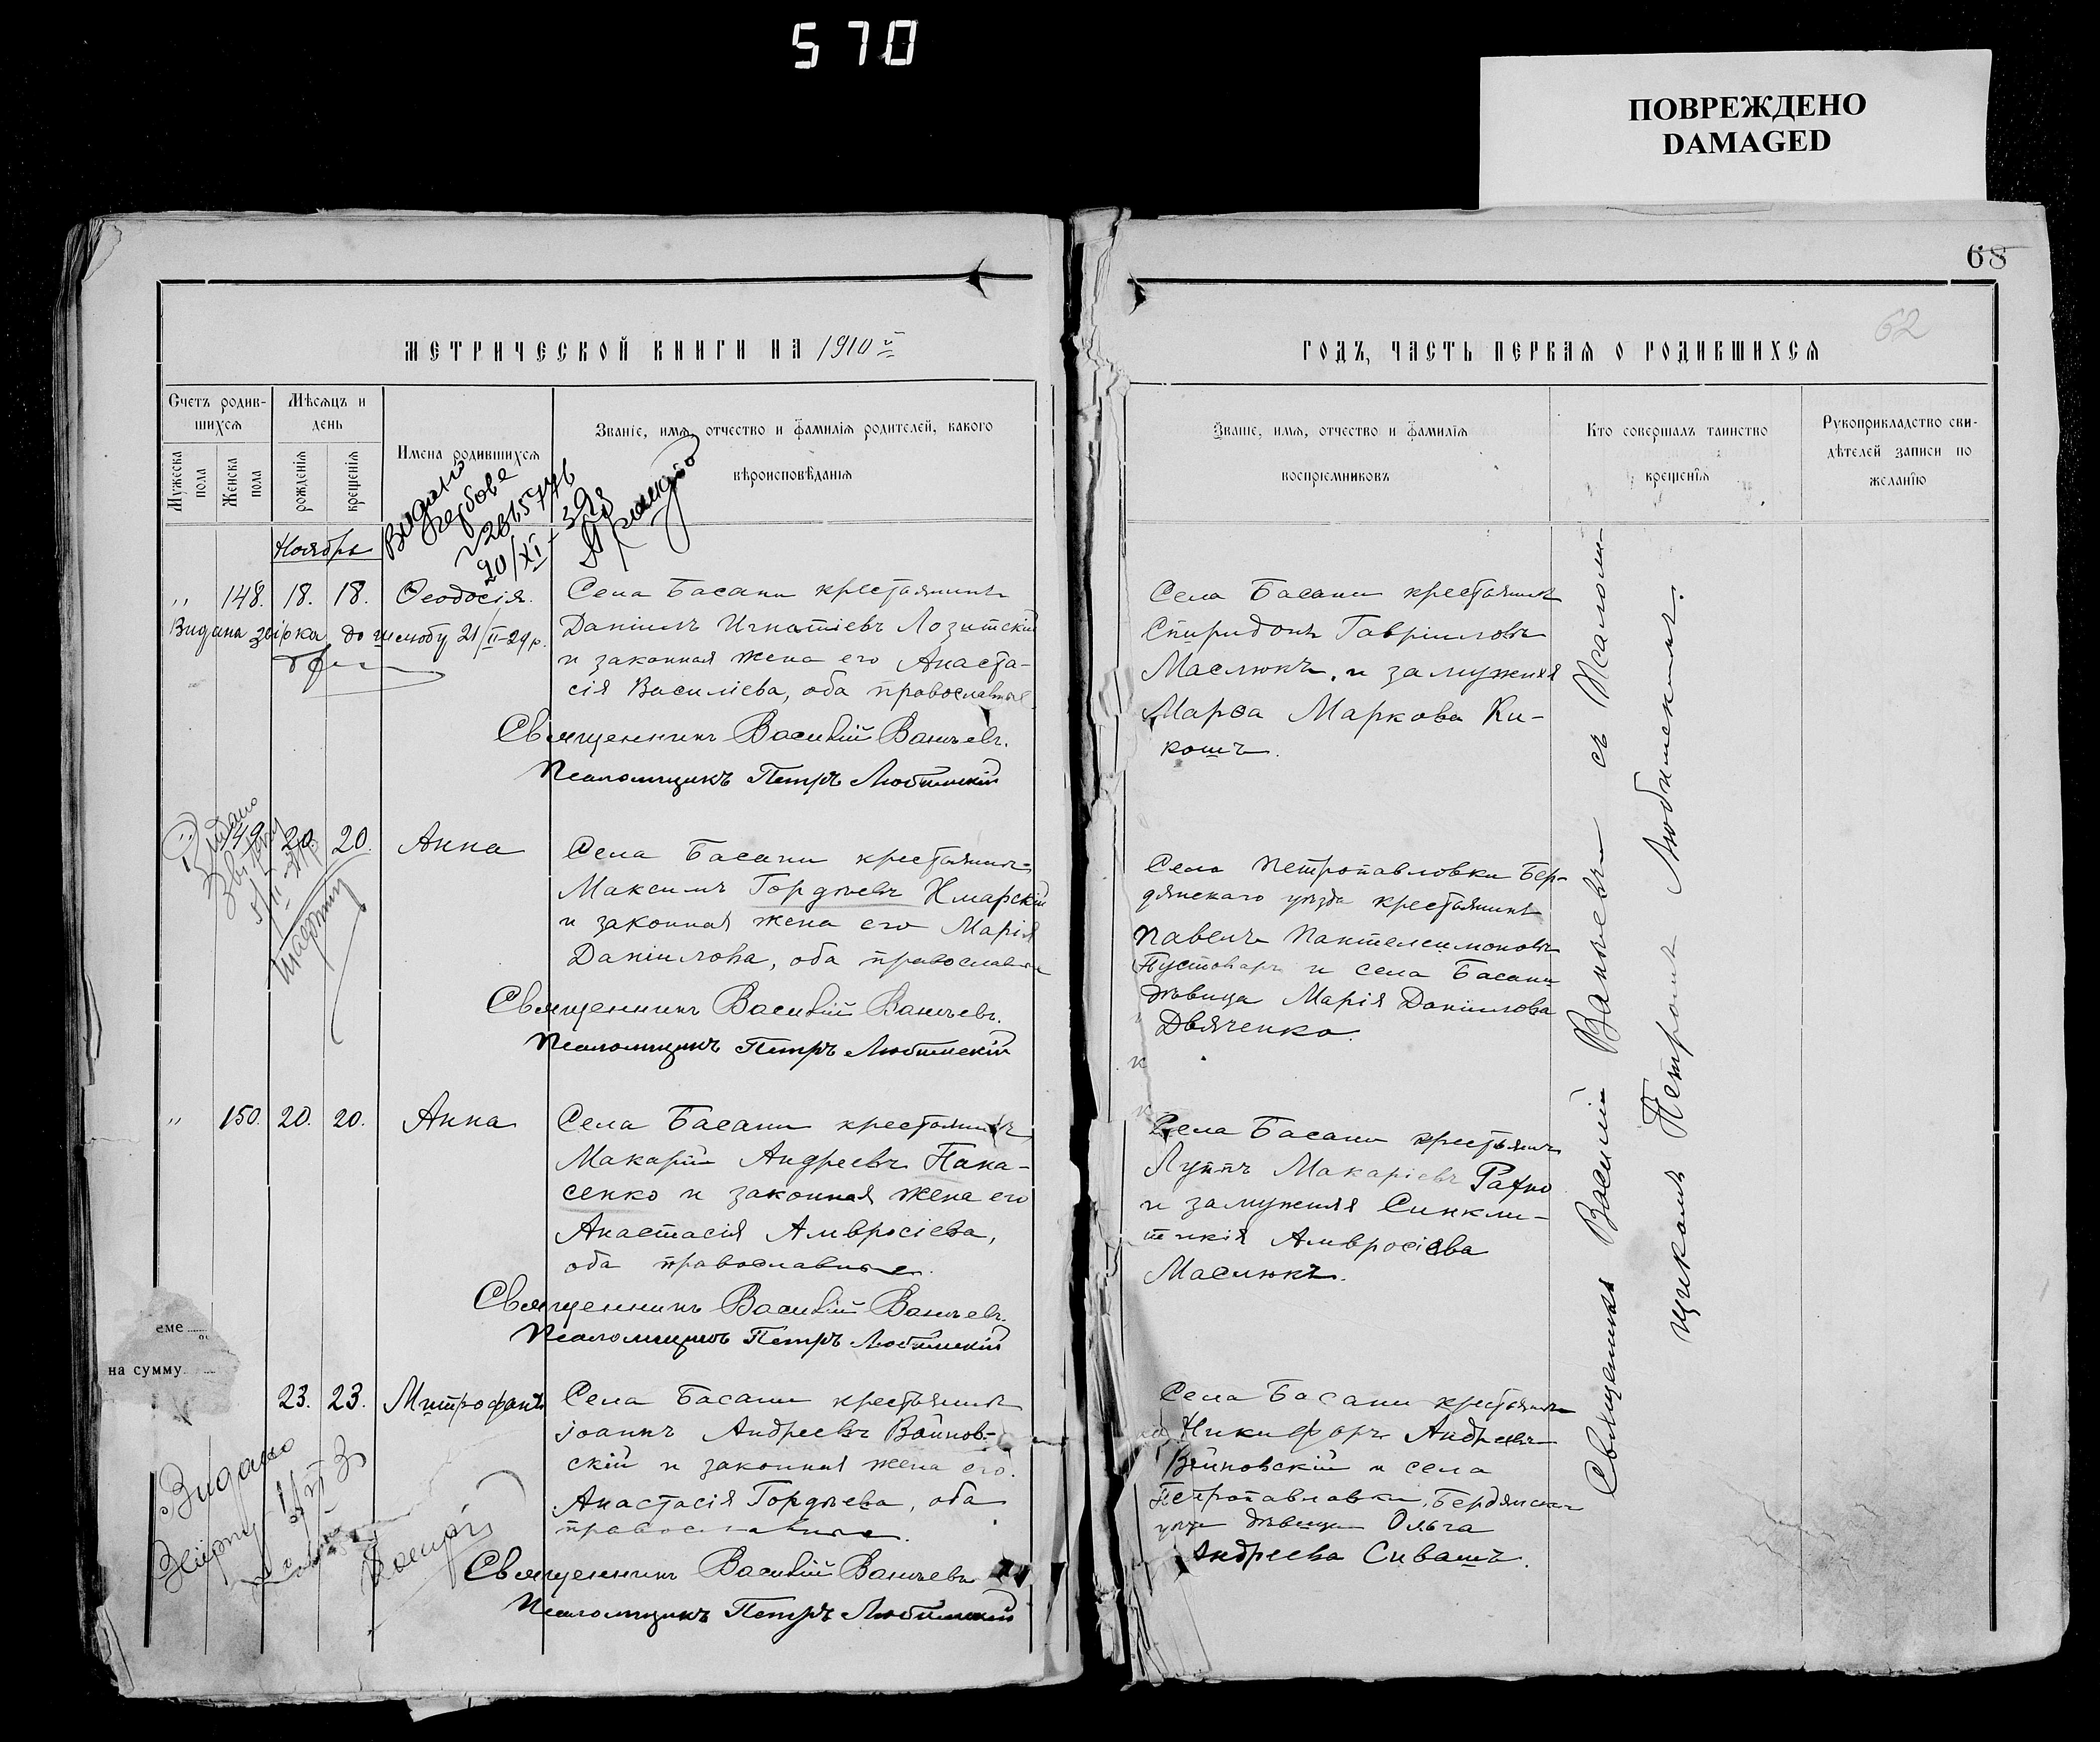 570
ПОВРЕЖДЕНО
DAMAGED
68
62
МЕТРИЧЕСКОЙ КНИГИ НА 1910 й
ГОДЪ, ЧАСТЬ ПЕРВАЯ О РОДИВШИХСЯ
Счетъ родив-
шихся
Мужеска пола
Женска пола
Мѣсяцъ и
день
рожденія
крещенія
Имена родившихся
Званіе, имя, отчество и фамилія родителей, какого
вѣроисповѣданія
Званіе, имя, отчество и фамилія
воспріемниковъ
Кто совершалъ таинство
крещенія
Рукоприкладство сви-
дѣтелей записи по
желанію
Ноябрь
20/XI
„ 148. 18. 18. Ѳеодосія.
Видана звірка до шлюбу 21/II-29 р.
Села Басани крестьянинъ
Даніилъ Игнатіевъ Лозитскій
и законная жена его Анаста-
сія Василіева, оба православные
Священникъ Василій Ваньчевъ.
Псаломщикъ Петръ Любимскій
Села Басани крестьянинъ
Спиридонъ Гавріиловъ
Маслюкъ, и замужняя
Марѳа Маркова Ки-
кошъ.
„ 149. 20. 20. Анна
Видано
Села Басани крестьянинъ
Максимъ Гордѣевъ Хмарскій
и законная жена его Марія
Даніилова, оба православные
Священникъ Василій Ваньчевъ.
Псаломщикъ Петръ Любимскій
Села Петропавловки Бер-
дянскаго уѣзда крестьянинъ
Павелъ Пантелеимоновъ
Пустоваръ и села Басани
дѣвица Марія Даніилова
Дьяченко.
„ 150. 20. 20. Анна
Села Басани крестьянинъ
Макарій Андреевъ Пана-
сенко и законная жена его
Анастасія Амвросіева,
оба православные.
Священникъ Василій Ваньчевъ.
Псаломщикъ Петръ Любимскій
Села Басани крестьянинъ
Луппъ Макаріевъ
и замужняя Синкли-
тикія Амвросіева
Маслюкъ.
еме
на сумму
23. 23. Митрофанъ
Видано
Села Басани крестьянинъ
Іоаннъ Андреевъ Войнов-
скій и законная жена его
Анастасія Гордѣева, оба
православные.
Священникъ Василій Ваньчевъ
Псаломщикъ Петръ Любимскій
Села Басани крестьянинъ
Никифоръ Андреевъ
Войновскій и села
Петропавловки, Бердянскаго
уѣзда дѣвица Ольга
Андреева Сивашъ.
Священникъ Василій Ваньчевъ съ Псалом-
щикомъ Петромъ Любимскимъ.